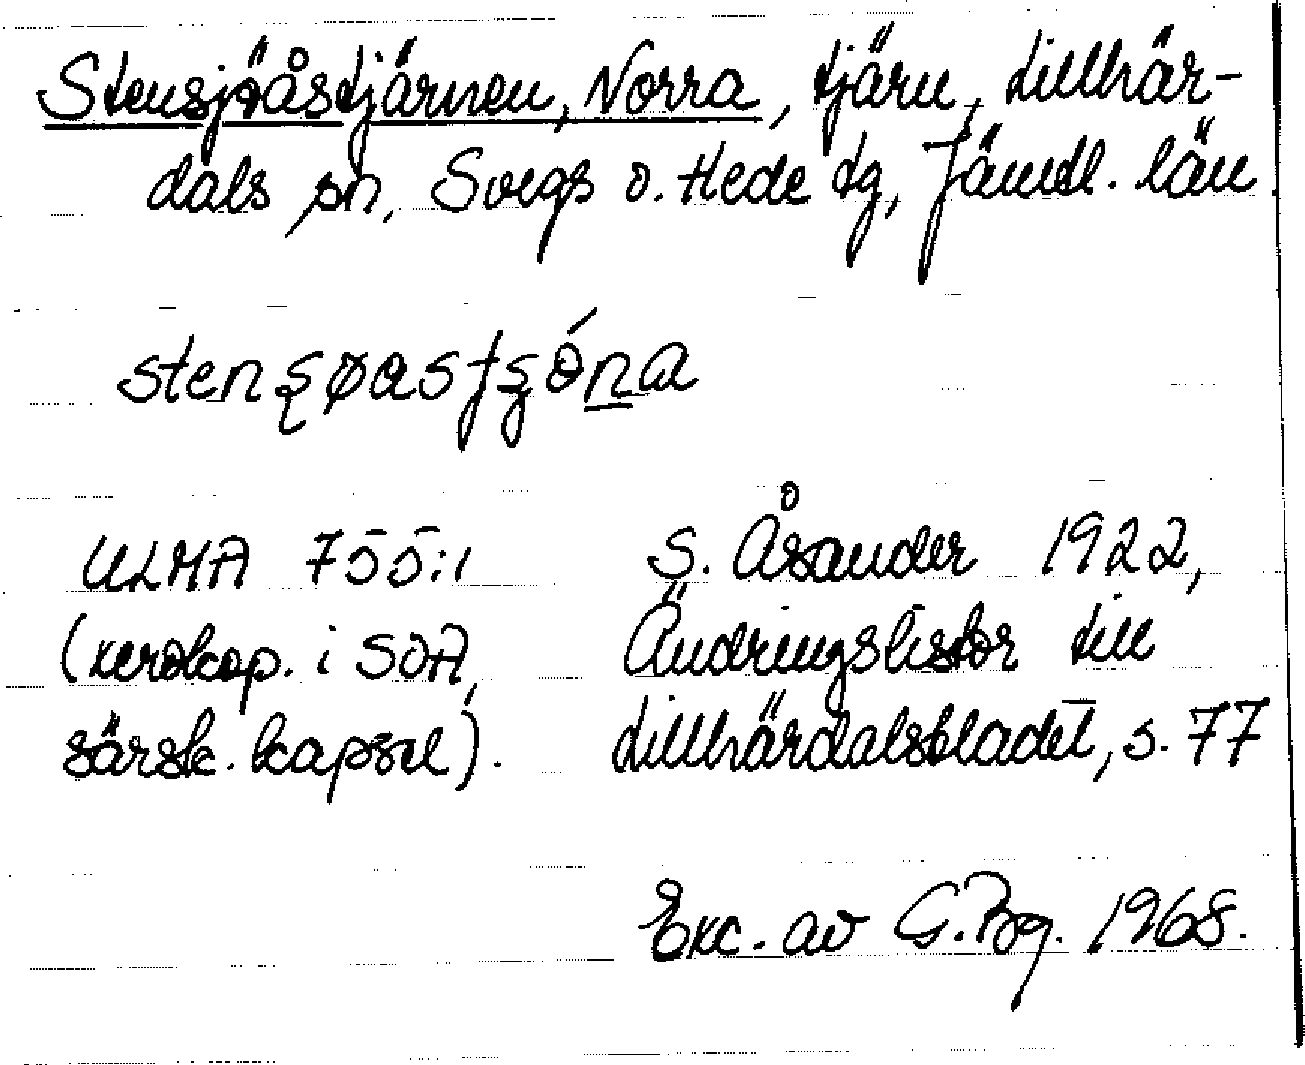 Stensjöåstjärnen, Norra, tjärn, Lillhär-
dals sn, Svegs o. Hede tg, Jämtl. län.
ULMA 755:1
(xerokop. i SOA,
särsk. kapsel).
S. Åsander 1922,
Ändringslistor till
Lillhärdalsbladet, s. 77
Exc. av G. Bg. 1968.